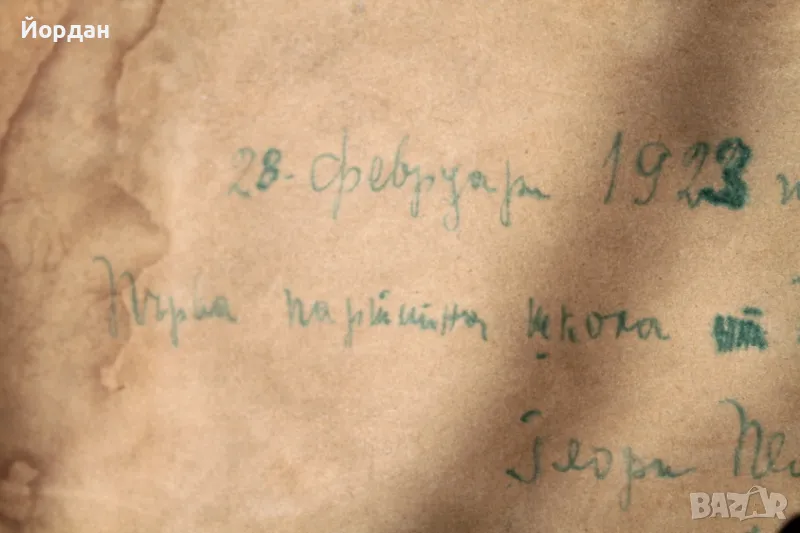 Йордан
28. февруари 1923
Първа партийна школа
Георги
BAZAR